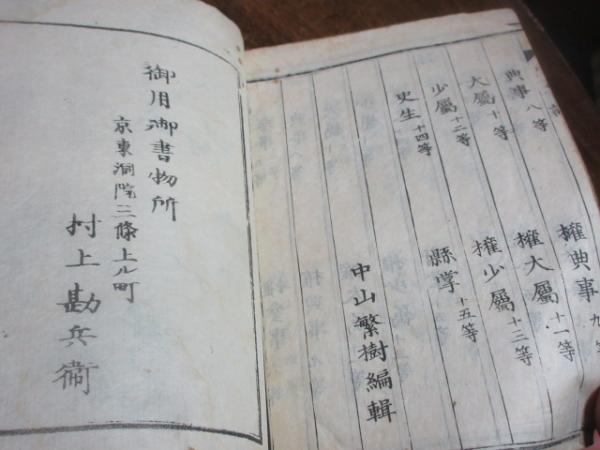 典事 八等
權典事 九等
大屬 十等
權大屬 十一等
少屬 十二等
權少屬 十三等
史生 十四等
縣掌 十五等
中山繁樹編輯
御用御書物所
京東洞院三條上ル町
村上勘兵衞